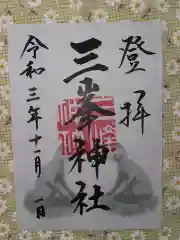 登拝
三峯神社
令和三年十一月一日